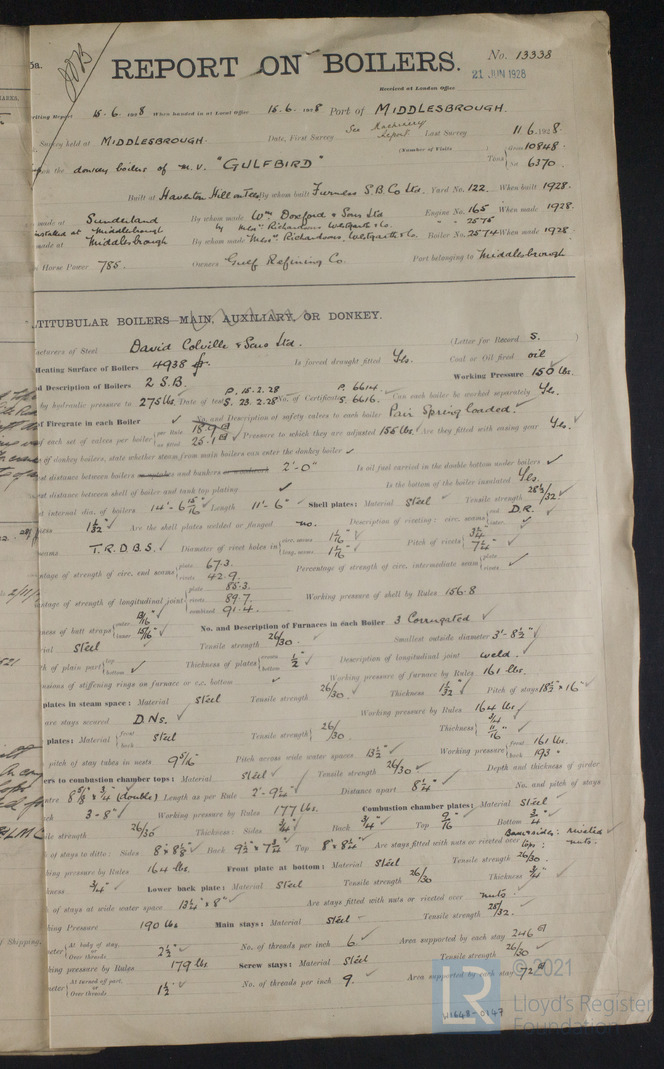 REPORT ON BOILERS.
No. 13338
21 JUN 1928
Received at London Office
Writing Report 15.6.1928 When handed in at Local Office 15.6.1928 Port of MIDDLESBROUGH.
Survey held at MIDDLESBROUGH. Date, First Survey See Machinery Report. Last Survey 11.6.1928.
(Number of Visits
on the donkey boilers of m.v. "GULFBIRD" Tons Gross 10848 Net 6370
Built at Haverton Hill on Tees By whom built Furness S.B. Co Ltd. Yard No. 122 When built 1928.
made at Sunderland By whom made Wm Doxford & Sons Ltd Engine No. 165 When made 1928.
installed at Middlesbrough by Messrs Richardsons Westgarth & Co. " " 2575
made at Middlesbrough By whom made Messrs Richardsons, Westgarth & Co. Boiler No. 2574 When made 1928.
Horse Power 785. Owners Gulf Refining Co. Port belonging to Middlesbrough
MULTITUBULAR BOILERS MAIN, AUXILIARY, OR DONKEY.
facturers of Steel David Colville & Sons Ltd. (Letter for Record S.)
Heating Surface of Boilers 4938 Is forced draught fitted Yes. Coal or Oil fired oil
d Description of Boilers 2 S.B. Working Pressure 150 lbs.
by hydraulic pressure to 275 lbs. Date of test P. 15.2.28 S. 23.2.28 No. of Certificate P. 6614. S. 6616. Can each boiler be worked separately Yes.
of Firegrate in each Boiler No. and Description of safety valves to each boiler Pair Spring Loaded.
each set of valves per boiler per Rule 18.9 as fitted 25.1 Pressure to which they are adjusted 155 lbs. Are they fitted with easing gear Yes.
of donkey boilers, state whether steam from main boilers can enter the donkey boiler
distance between boilers or uptakes and bunkers or woodwork 2'-0" Is oil fuel carried in the double bottom under boilers
distance between shell of boiler and tank top plating Is the bottom of the boiler insulated Yes.
internal dia. of boilers 14'-6 15/16" Length 11'-6" Shell plates: Material Steel Tensile strength 28½/32
1 1/32" Are the shell plates welded or flanged no. Description of riveting: circ. seams end D.R. inter.
seams T.R.D.B.S. Diameter of rivet holes in circ. seams 1 1/16" long. seams 1 1/16" Pitch of rivets 3¾" 7¼"
entage of strength of circ. end seams plate 67.3 rivets 42.9 Percentage of strength of circ. intermediate seam plate rivets
entage of strength of longitudinal joint plate 85.3 rivets 89.7 combined 91.4. Working pressure of shell by Rules 156.8
ness of butt straps outer 13/16" inner 15/16" No. and Description of Furnaces in each Boiler 3 Corrugated
rial Steel Tensile strength 26/30 Smallest outside diameter 3'-8½"
h of plain part top bottom Thickness of plates crown bottom ½" Description of longitudinal joint weld.
nsions of stiffening rings on furnace or c.c. bottom Working pressure of furnace by Rules 161 lbs.
plates in steam space: Material Steel Tensile strength 26/30. Thickness 1 1/32" Pitch of stays 18½" x 16"
are stays secured D.Ns. Working pressure by Rules 164 lbs
plates: Material front back Steel Tensile strength 26/30 Thickness ¾" 11/16"
pitch of stay tubes in nests 9 5/16" Pitch across wide water spaces 13½" Working pressure front 161 lbs. back 193 "
ers to combustion chamber tops: Material Steel Tensile strength 26/30 Depth and thickness of girder
ntre 8 5/8" x ¾" (double) Length as per Rule 2'-9¼" Distance apart 8¼" No. and pitch of stays
ach 3-8" Working pressure by Rules 177 lbs. Combustion chamber plates: Material Steel
le strength 26/30 Thickness: Sides ¾" Back ¾" Top 9/16 Bottom ¾"
of stays to ditto: Sides 8" x 8⅝" Back 9½" x 7¾" Top 8" x 8¼" Are stays fitted with nuts or riveted over Back & sides: riveted top: nuts.
ing pressure by Rules 164 lbs. Front plate at bottom: Material Steel Tensile strength 26/30.
ness ¾" Lower back plate: Material Steel Tensile strength 26/30 Thickness ¾"
of stays at wide water space 13½" x 8" Are stays fitted with nuts or riveted over nuts.
ing Pressure 190 lbs Main stays: Material Steel Tensile strength 28/32.
meter At body of stay, or Over threads 2½" No. of threads per inch 6 Area supported by each stay 246
ing pressure by Rules 179 lbs Screw stays: Material Steel Tensile strength 26/30
meter At turned off part, or Over threads 1½" No. of threads per inch 9. Area supported by each stay 72
© 2021
LR
Lloyd's Register
Foundation
W1648-0147